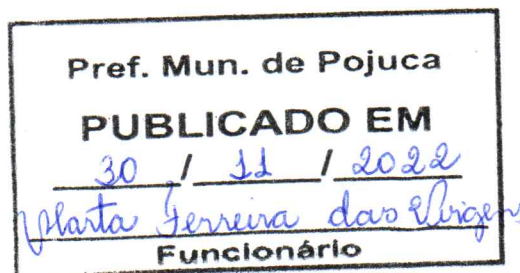 Pref. Mun. de Pojuca
PUBLICADO EM
30 / 11 / 2022
Marta Ferreira das Virgens
Funcionário